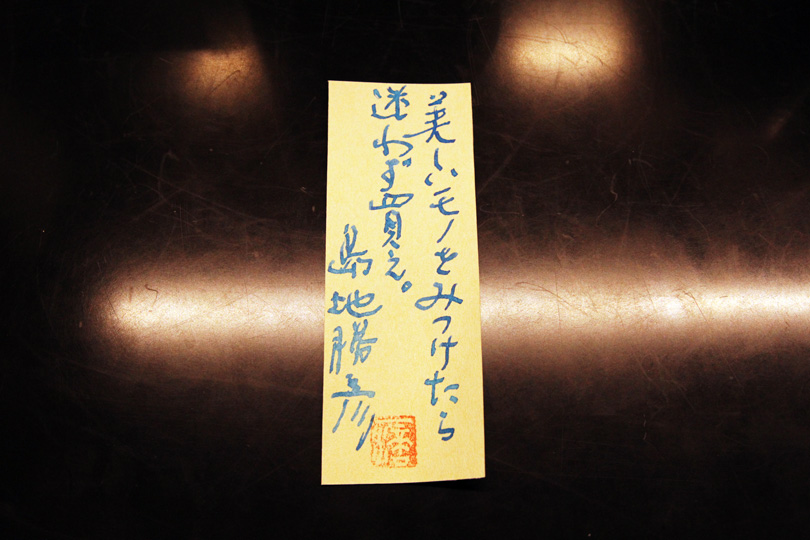 美しいモノをみつけたら
迷わず買え。
島地勝彦